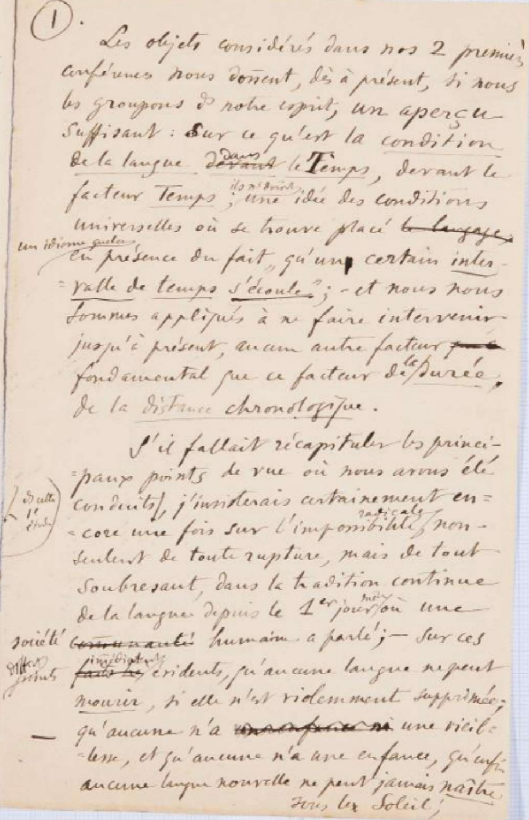 1
Les objets considérés dans nos 2 premières
conférences nous donnent, dès à présent, si nous
les groupons ds notre esprit, un aperçu
suffisant : sur ce qu'est la condition
de la langue devant dans le Temps, devant le
facteur Temps ; une idée des conditions
universelles où se trouve placé le langage,
un idiome quelconque
en présence du fait „ qu'un certain inter-
=valle de temps s'écoule" ; - et nous nous
sommes appliqués à ne faire intervenir
jusqu'à présent, aucun autre facteur
fondamental que ce facteur de la Durée,
de la distance chronologique.
S'il fallait récapituler les princi-
=paux points de vue où nous avons été
conduits, j'insisterais certainement en-
de cette
1e
étude
=core une fois sur l'impossibilité radicale, non-
seulemt de toute rupture, mais de tout
soubresaut, dans la tradition continue
de la langue depuis le 1er jour même où une
société communauté humaine a parlé ; - sur ces
différents
points
faits évidents, qu'aucune langue ne peut
mourir, si elle n'est violemment supprimée ;
qu'aucune n'a une vieil-
=lesse, et qu'aucune n'a une enfance, qu'enfin
aucune langue nouvelle ne peut jamais naître
sous le Soleil ;